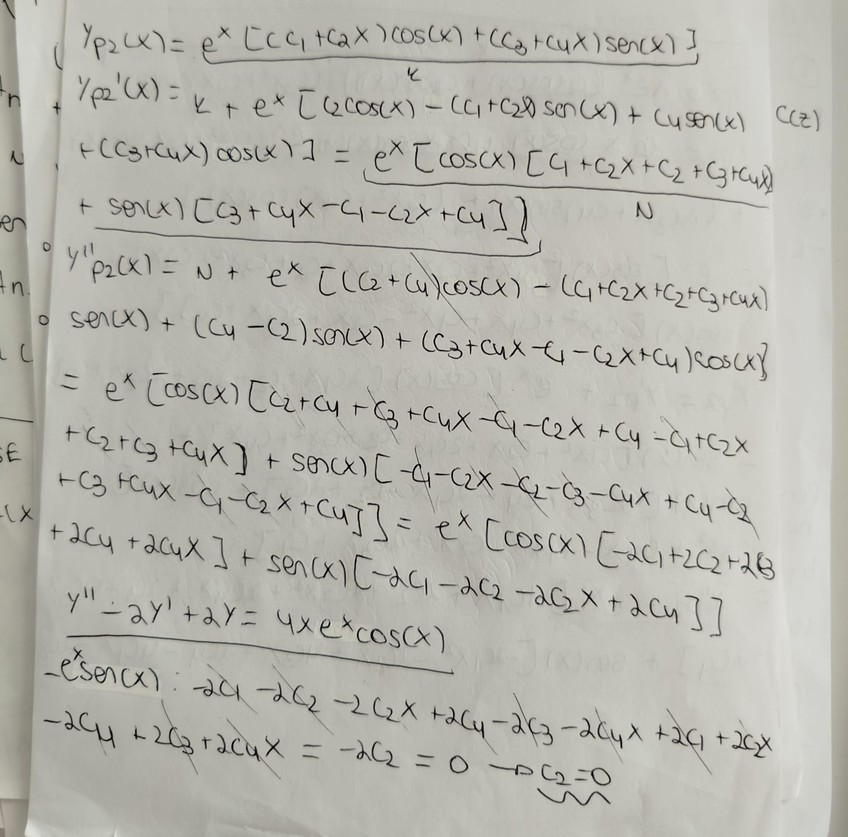 Yp2(x) = e^x [(C1+C2x)cos(x) + (C3+C4x)sen(x)]
K
Yp2'(x) = K + e^x [C2cos(x) - (C1+C2x)sen(x) + C4sen(x) C(z)
+(C3+C4x)cos(x)] = e^x [cos(x) [C1 + C2x + C2 + C3 + C4x]
+ sen(x) [C3 + C4x - C1 - C2x + C4]]
N
Y''p2(x) = N + e^x [(C2+C4)cos(x) - (C1+C2x+C2+C3+C4x)
sen(x) + (C4-C2)sen(x) + (C3+C4x-C1-C2x+C4)cos(x)]
= e^x [cos(x) [C2+C4 + C3 + C4x - C1 - C2x + C4 - C1 + C2x
+ C2 + C3 + C4x] + sen(x) [-C1 - C2x - C2 - C3 - C4x + C4 - C2
+ C3 + C4x - C1 - C2x + C4]] = e^x [cos(x) [-2C1 + 2C2 + 2C3
+ 2C4 + 2C4x] + sen(x) [-2C1 - 2C2 - 2C2x + 2C4]]
Y'' - 2Y' + 2Y = 4xe^xcos(x)
-e^xsen(x): -2C1 - 2C2 - 2C2x + 2C4 - 2C3 - 2C4x + 2C1 + 2C2x
-2C4 + 2C3 + 2C4x = -2C2 = 0 → C2=0